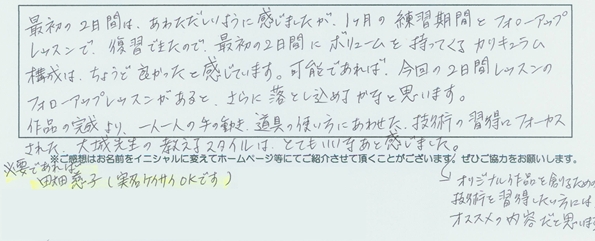 最初の2日間は、あわただしいように感じましたが、1ヶ月の練習期間とフォローアップ
レッスンで、復習できたので、最初の2日間にボリュームを持ってくるカリキュラム
構成は、ちょうど良かったと感じています。可能であれば、今回の2日間レッスンの
フォローアップレッスンがあると、さらに落とし込めすかなと思います。
作品の完成より、一人一人の手の動き、道具の使い方にあわせた、技術の習得にフォーカス
された、大城先生の教えるスタイルは、とてもいいなあと感じました。
※ご感想はお名前をイニシャルに変えてホームページ等にてご紹介させて頂くことがございます。ぜひご協力をお願いします。
※要であれば
田畑 恵子(実名ケイサイOKです)
オリジナル作品を創るための
技術を習得したい方には
オススメの内容だと思います